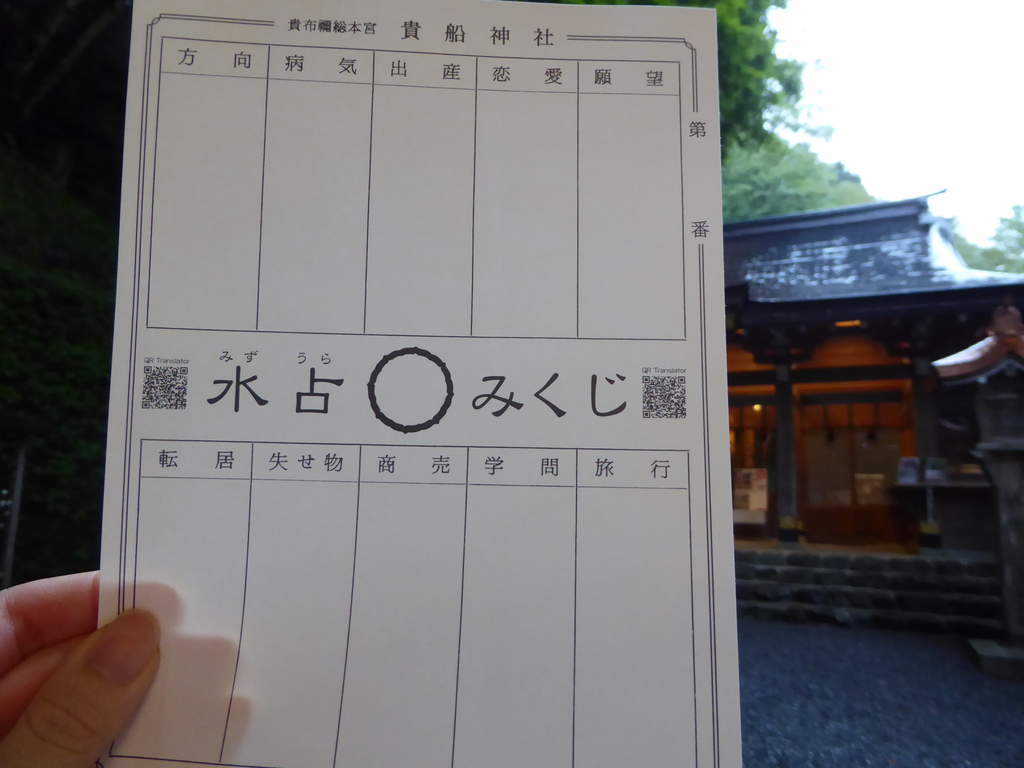 貴布禰総本宮 貴船神社
第 番
願望 恋愛 出産 病気 方向
みず うら
水占 みくじ
QR Translator
QR Translator
旅行 学問 商売 失せ物 転居